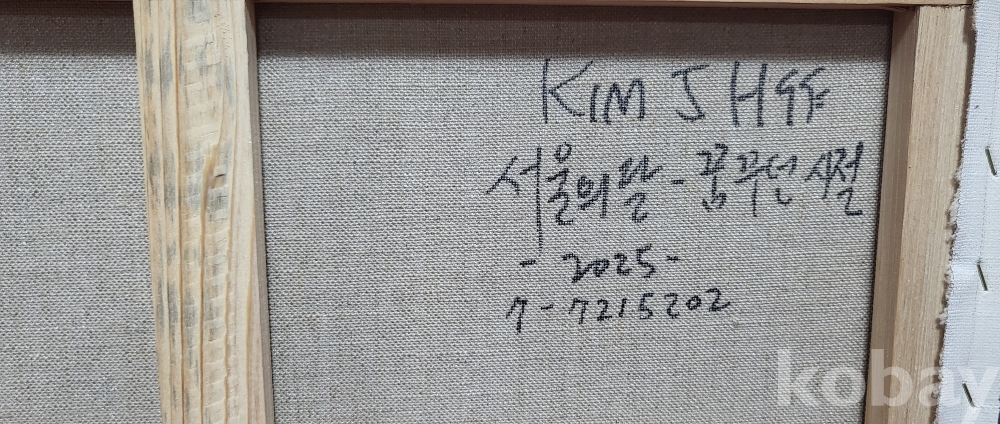 KIM J H
서울의 달 - 꿈꾸던 시절
- 2025 -
7 - 7215202
kobay